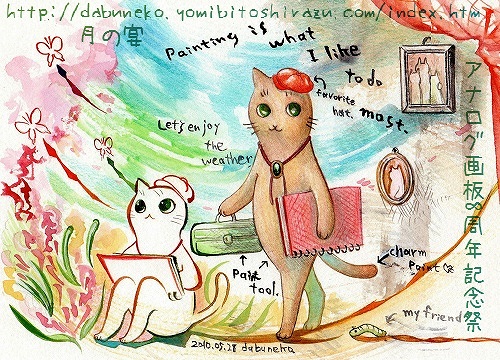 http://dabuneko.yomibitoshirazu.com/index.htm
月の宴
Painting is what
I like
to do
most.
favorite
hat.
Let's enjoy
the
weather
アナログ画板8周年記念祭
Paint
tool.
charm
Point
my friend
2010.05.28 dabuneko